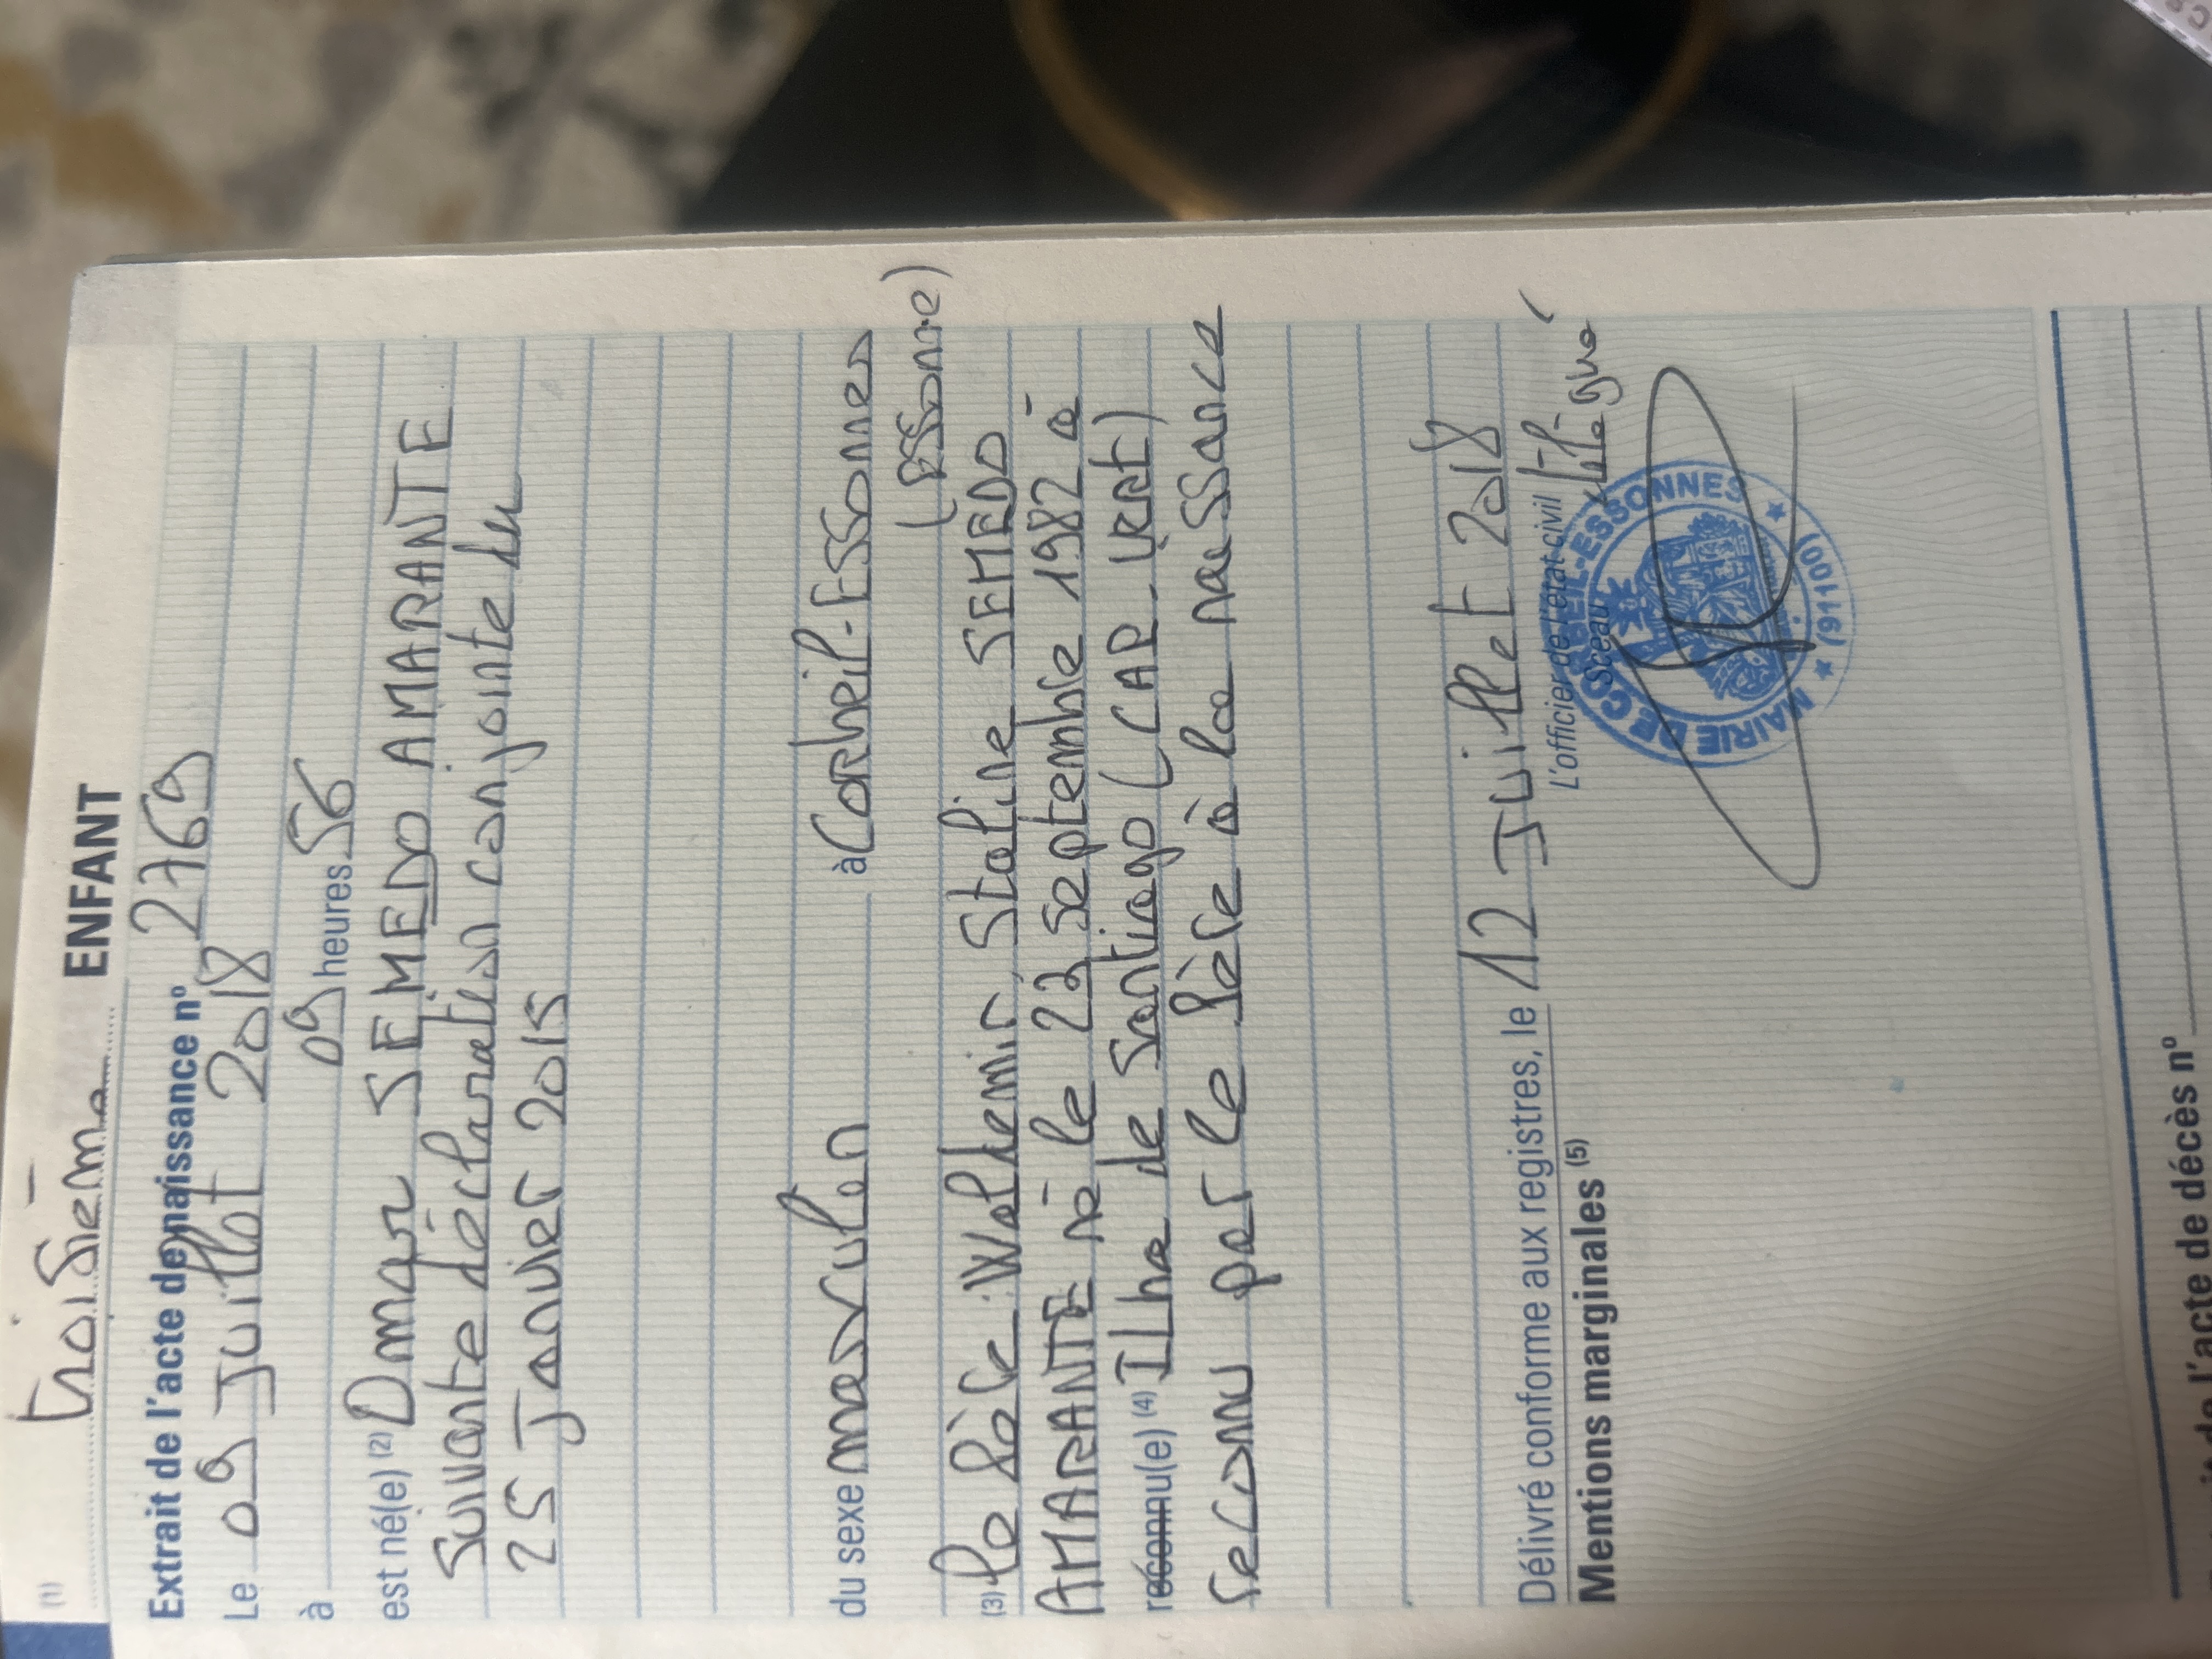 (1) troisième ENFANT
Extrait de l'acte de naissance n° 2769
Le 09 Juillet 2018
à 09 heures 56
est né(e) (2) Omar SEMEDO AMARANTE
Suivante déclaration conjointe du
25 Janvier 2015
du sexe masculin à Corbeil-Essonnes
(Essonne)
(3) le père: Waldemir, Staline SEMEDO
AMARANTE né le 23 septembre 1982 à
reconnu(e) (4) Ilha de Santiago (CAP-VERT)
reconnu par le père à la naissance
Délivré conforme aux registres, le 12 Juillet 2018
L'officier de l'état civil délégué
Sceau
MAIRIE DE CORBEIL-ESSONNES
(91100)
Mentions marginales (5)
de l'acte de décès n°